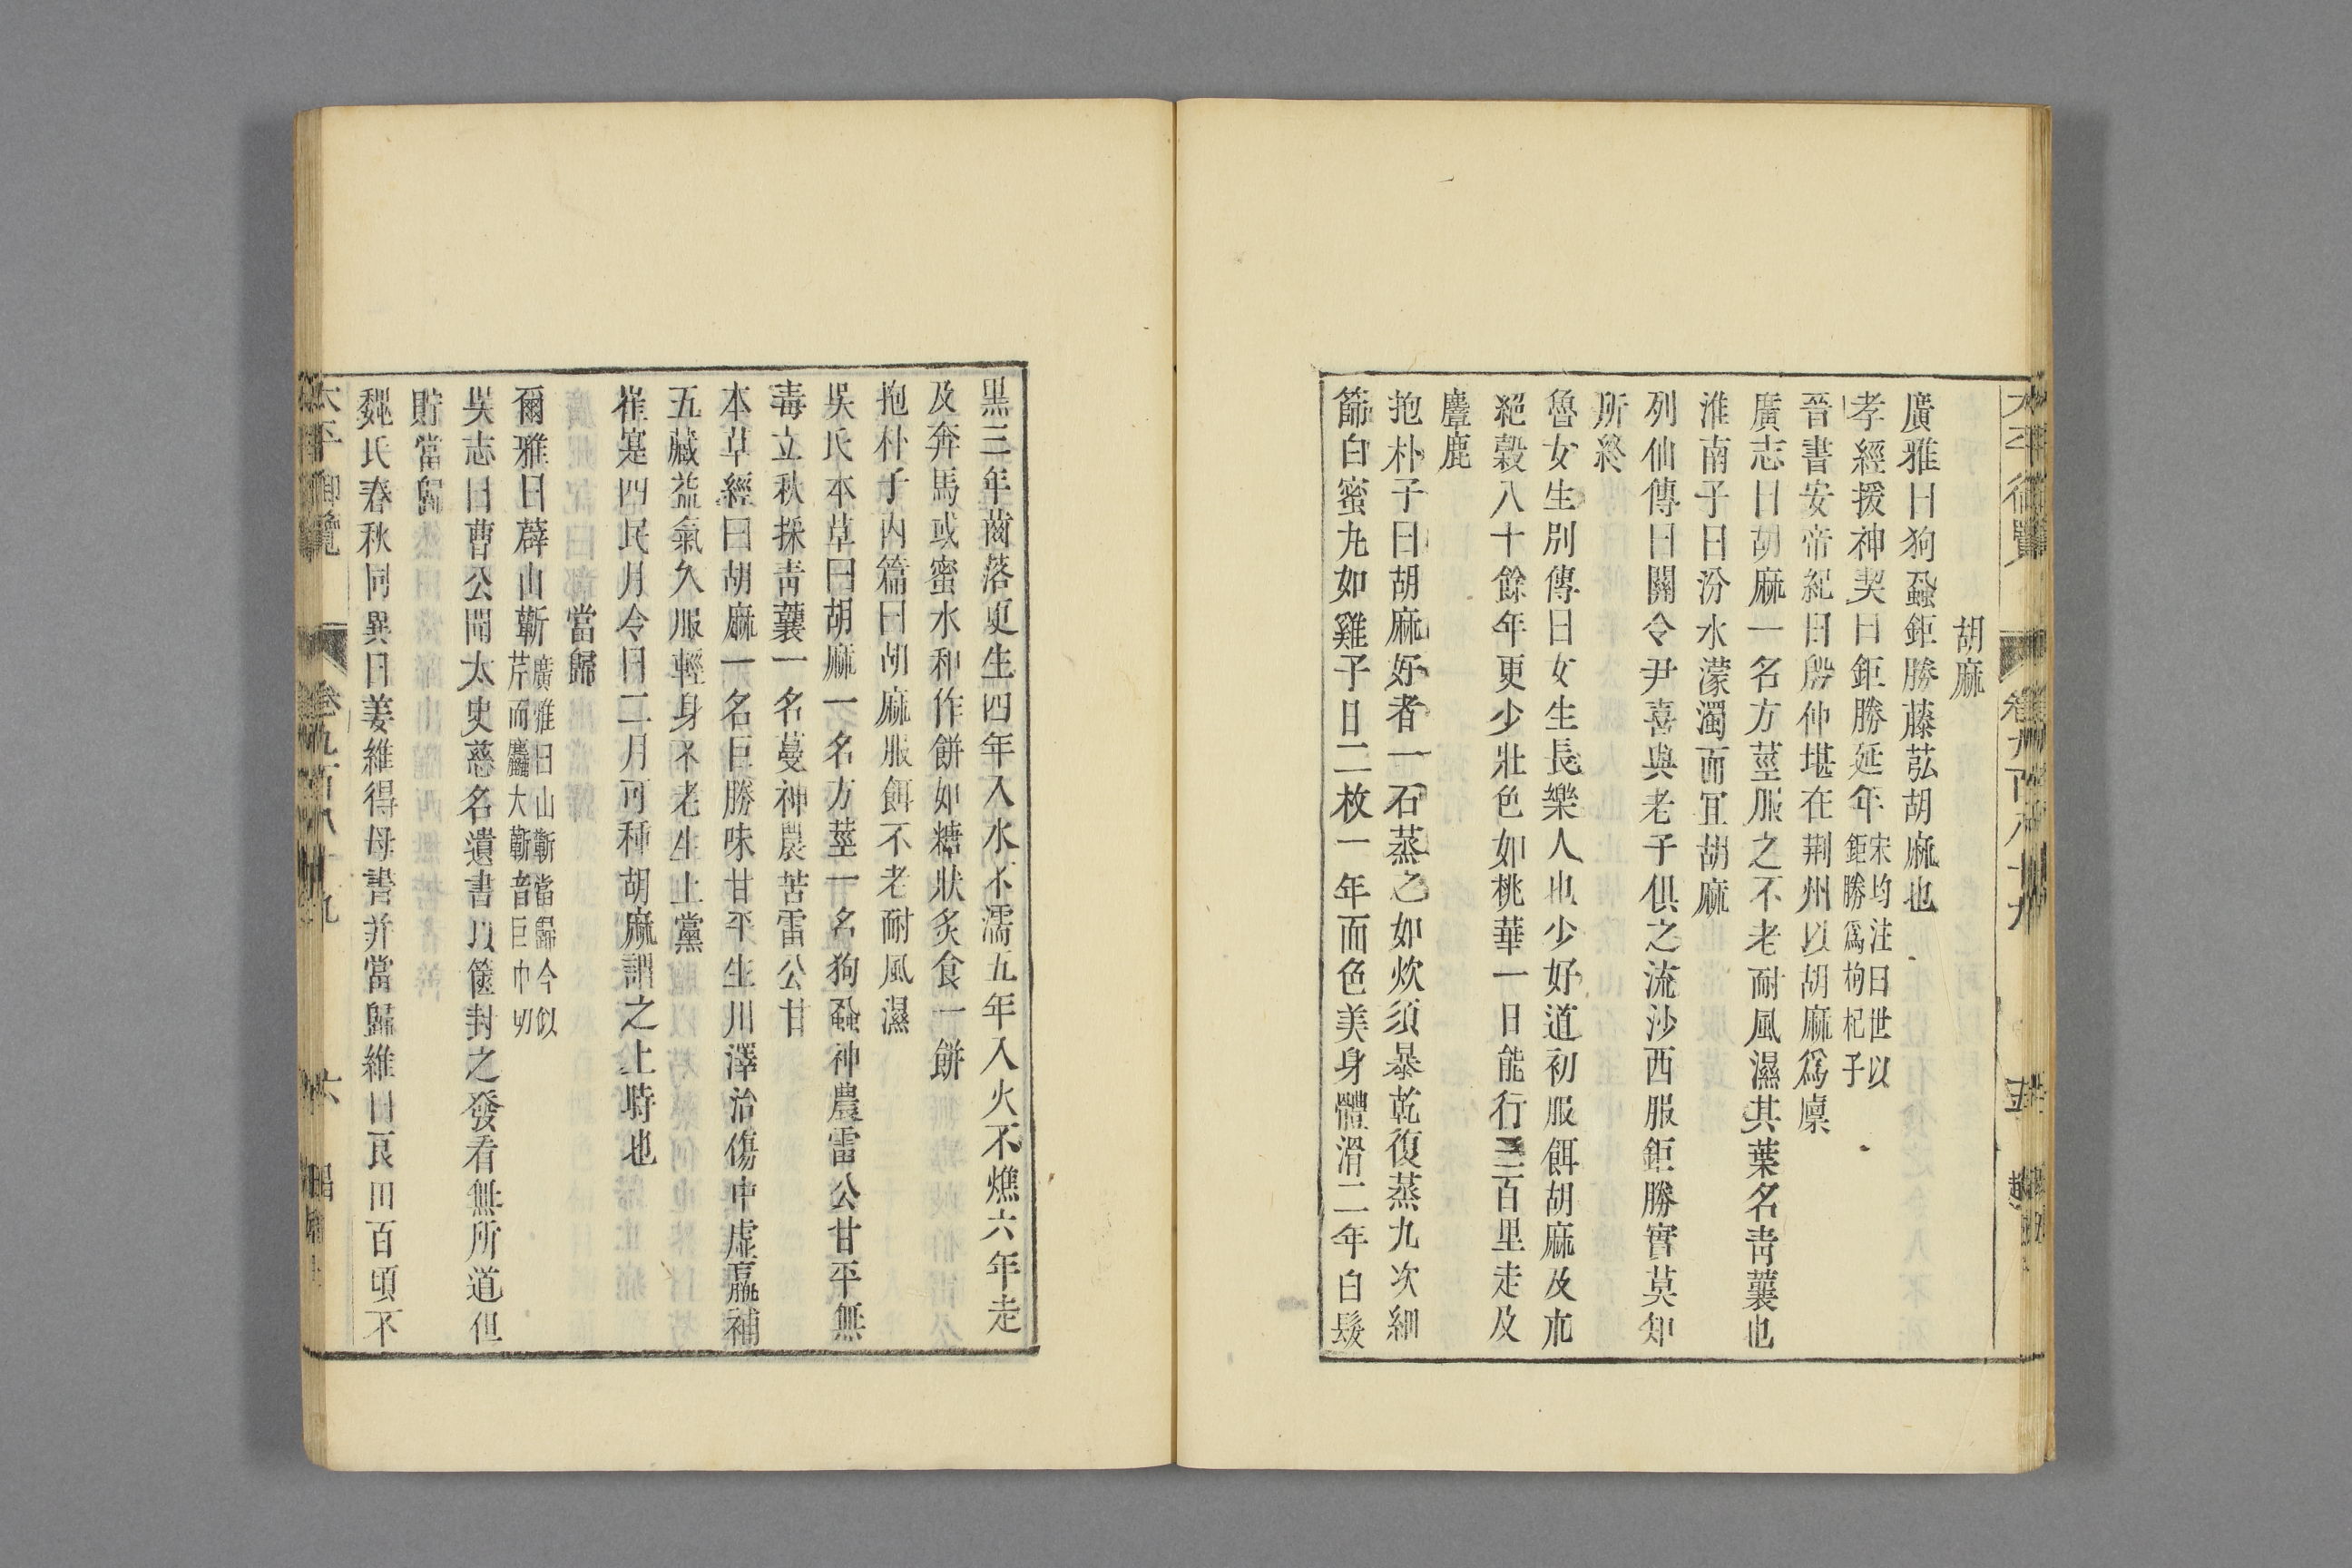 胡麻
廣雅曰狗蝨鉅勝藤茲胡麻也
孝經援神契曰鉅勝延年宋均注曰世以鉅勝爲枸杞子
晉書安帝紀曰殷仲堪在荆州以胡麻爲廩
廣志曰胡麻一名方莖服之不老耐風濕其葉名青蘘也
淮南子曰汾水濛濁而宜胡麻
列仙傳曰關令尹喜與老子俱之流沙西服鉅勝實莫知
所終
魯女生別傳曰女生長樂人也少好道初服餌胡麻及朮
絕穀八十餘年更少壯色如桃華一日能行三百里走及
麞鹿
抱朴子曰胡麻好者一石蒸之如炊須暴乾復蒸九次細
篩白蜜丸如雞子日二枚一年而色美身體滑二年白髮
黑三年齒落更生四年入水不濡五年入火不燋六年走
及奔馬或蜜水和作餅如糖狀炙食一餅
抱朴子內篇曰胡麻服餌不老耐風濕
吳氏本草曰胡麻一名方莖一名狗蝨神農雷公甘平無
毒立秋採青蘘一名蔓神農苦雷公甘
本草經曰胡麻一名巨勝味甘平生川澤治傷中虛羸補
五藏益氣久服輕身不老生上黨
崔寔四民月令曰二月可種胡麻謂之上時也
當歸
爾雅曰薜山蘄廣雅曰山蘄當歸今似芹而麤大蘄音巨巾切
吳志曰曹公聞太史慈名遺書以篋封之發看無所道但
貯當歸
魏氏春秋同異曰姜維得母書并當歸維曰良田百頃不
太平御覽 卷九百八十九 六